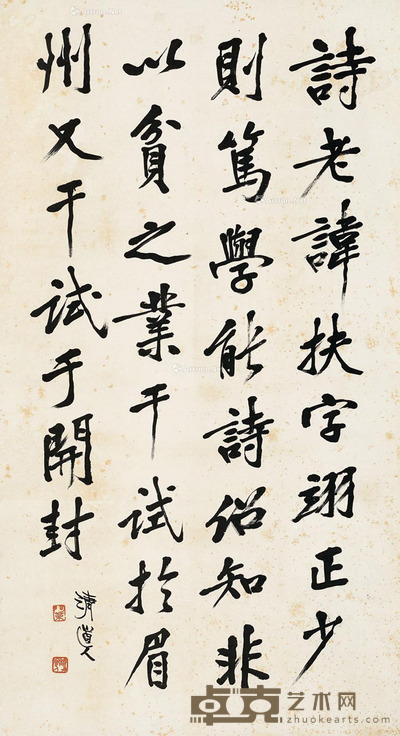 詩老諱扶字翊正少
則篤學能詩俗知非
以貧之業干試於眉
州又干試于開封
清道人
卓克艺术网
zhuokearts.com